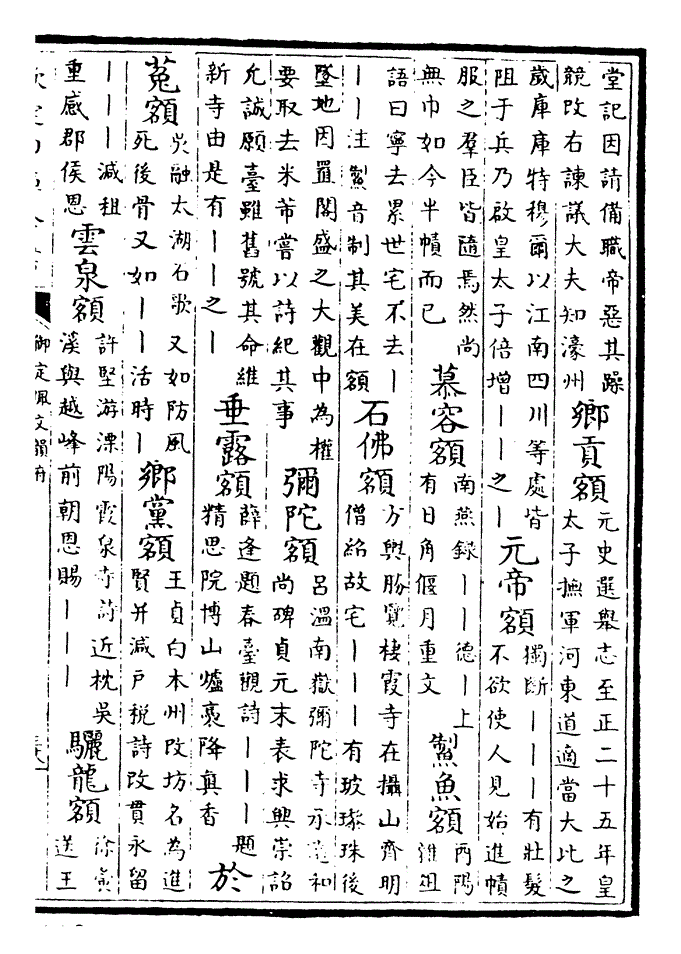 堂記因請備職帝惡其躁
競改右諫議大夫知濠州
鄉貢額
元史選舉志至正二十五年皇
太子撫軍河東道適當大比之
歲庫庫特穆爾以江南四川等處皆
阻于兵乃啟皇太子倍增｜｜之｜
元帝額
獨斷｜｜｜有壯髮
不欲使人見始進幘
服之羣臣皆隨焉然尚
無巾如今半幘而已
慕容額
南燕錄｜｜德｜上
有日角偃月重文
䱥魚額
酉陽
雜俎
語曰寧去累世宅不去｜
｜｜注䱥音制其美在額
石佛額
方輿勝覽棲霞寺在攝山齊明
僧紹故宅｜｜｜有玻瓈珠後
墜地因置閣盛之大觀中為權
要取去米芾嘗以詩紀其事
彌陀額
呂溫南嶽彌陀寺承遠和
尚碑貞元末表求興崇詔
允誠願臺雖舊號其命維
新寺由是有｜｜之｜
垂露額
薛逢題春臺觀詩｜｜｜題
精思院博山爐裊降真香
於
菟額
吳融太湖石歌又如防風
死後骨又如｜｜活時｜
鄉黨額
王貞白本州改坊名為進
賢并減戶稅詩改貫永留
｜｜｜減租
重感郡侯恩
雲泉額
許堅游溧陽霞泉寺詩近枕吳
溪與越峰前朝恩賜｜｜｜
驪龍額
徐夤
送王
御定佩文韻府